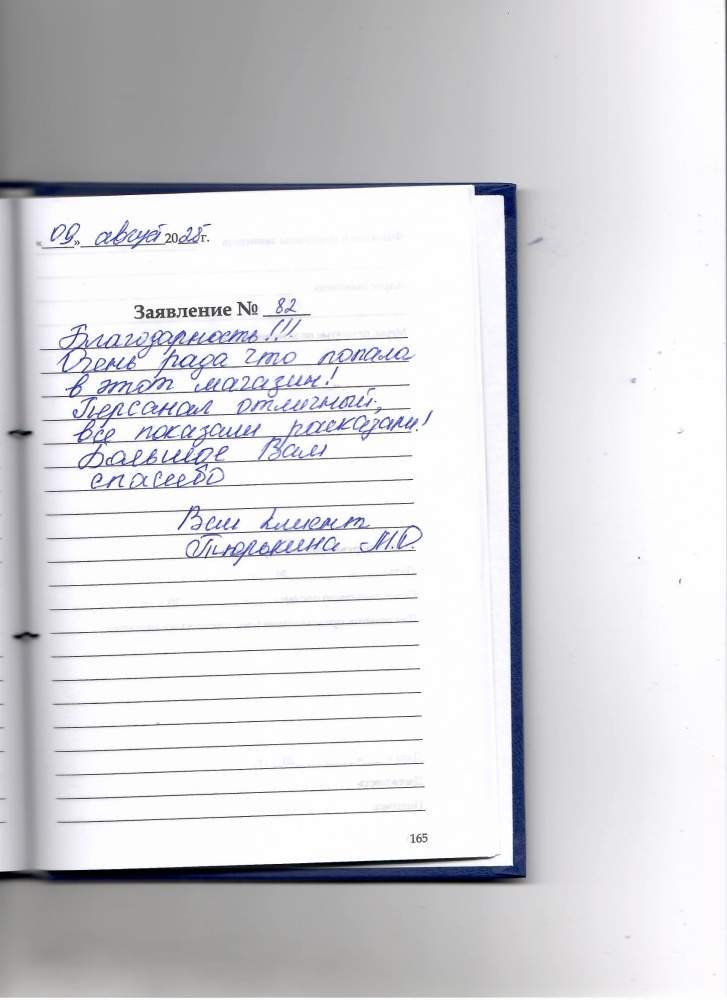 «09» август 2025г.
Заявление № 82
Благодарность!!!
Очень рада что попала
в этот магазин!
Персанал отличный,
все показали расказали!
Большое Вам
спасибо
Ваш клиент
Тюрькина М.О.
165